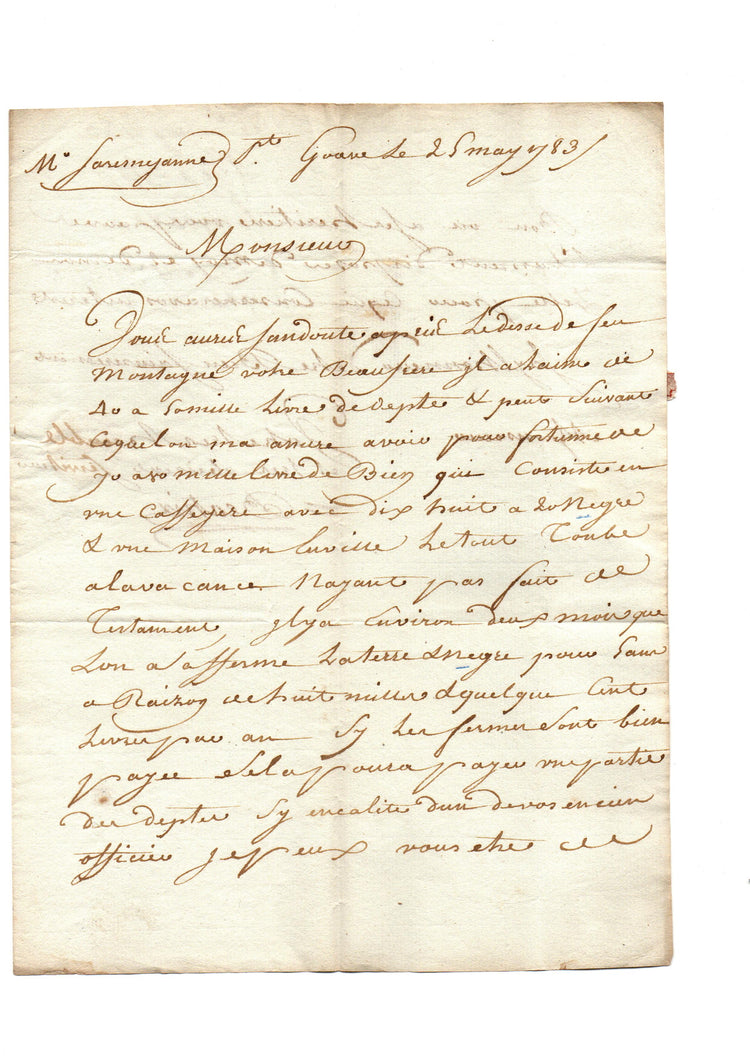 Mr Saremejanne Pt Goave Le 25 may 1783
Monsieur
Vous aurée sandoute aprie Ledesse de feu
Montagne votre Beaufrere jl a Laime de
40 a 50 mille Livre de depte & peut Suivant
cequelon ma assure avoir pour fortunne de
70 a 80 mille Livre de Bien qui Consiste en
une Caffeyere avec dix huit a 20 Negre
& une Maison Enville Le tout Tonbe
a la vacance Nayant pas fait de
Testament, jlya Environ deux moir que
Lon a afferme La terre & Negre pour 5 ans
a Raizon de huit mille & quelque Cent
Livres par an Sy Les fermes sont bien
payee Sela poura payer une partie
des deptes Sy enCalite dun de vos encien
officier je peux vous etre de